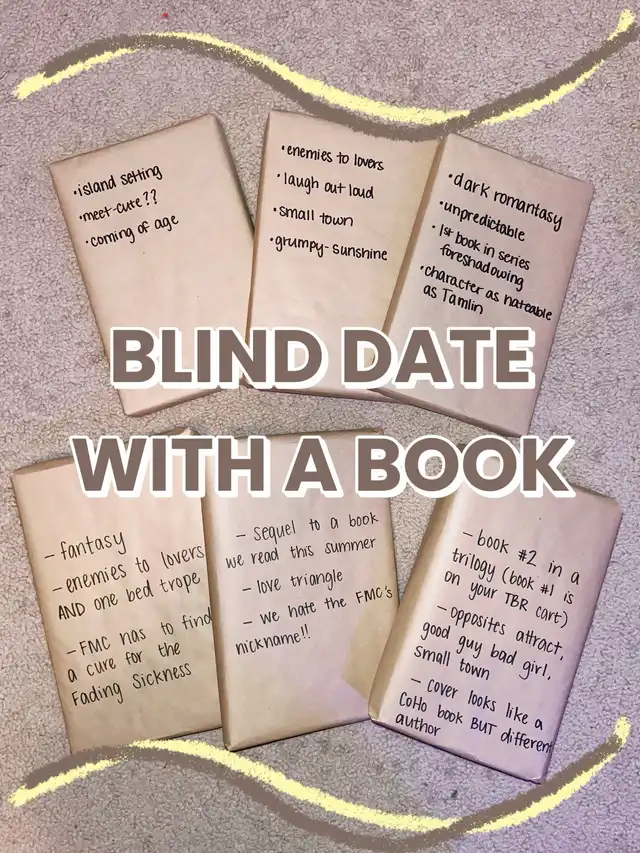 •island setting
•meet-cute??
•coming of age
•enemies to lovers
•laugh out loud
•small town
•grumpy-sunshine
•dark romantasy
•unpredictable
•1st book in series
foreshadowing
•character as hateable
as Tamlin
BLIND DATE
WITH A BOOK
– fantasy
– enemies to lovers
AND one bed trope
– FMC has to find
a cure for the
Fading Sickness
– sequel to a book
we read this summer
– love triangle
– we hate the FMC's
nickname!!
– book #2 in a
trilogy (book #1 is
on your TBR cart)
– opposites attract,
good guy bad girl,
small town
– cover looks like a
CoHo book BUT different
author